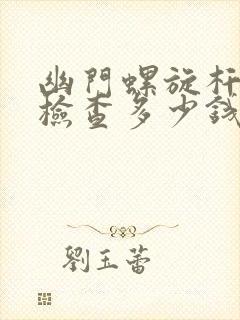 幽門螺旋杆
檢查多少錢
劉玉蕾